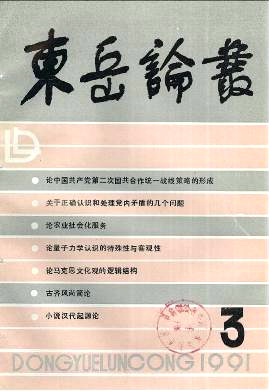 東岳論叢
论中国共产党第二次国共合作统一战线策略的形成
关于正确认识和处理党内矛盾的几个问题
论农业社会化服务
论量子力学认识的特殊性与客观性
论马克思文化观的逻辑结构
古齐风尚简论
小说汉代起源论
3
DONGYUELUNCONG 1991